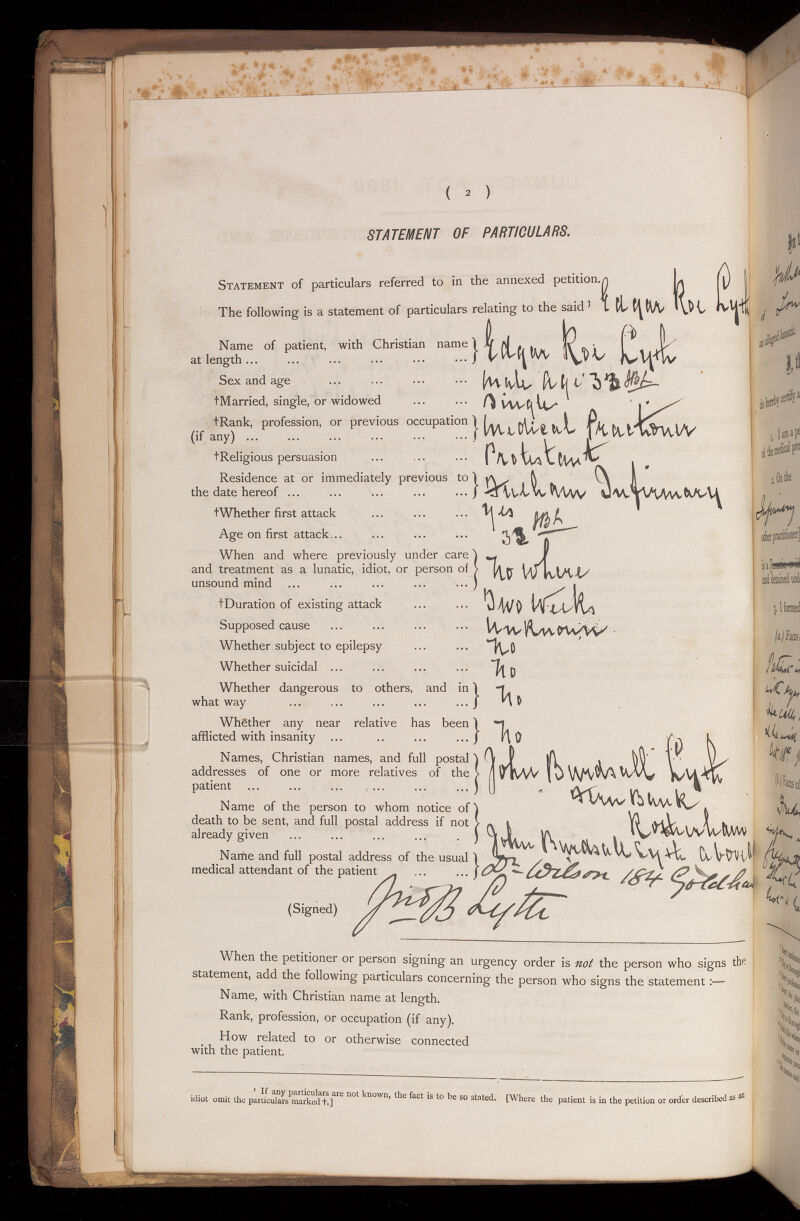 ( 2 )
STATEMENT OF PARTICULARS.
STATEMENT of particulars referred to in the annexed petition.
The following is a statement of particulars relating to the said ¹ Edgar Roe Lyth
Name of patient, with Christian name at length ... ... ... ... ... ... } Edgar Roe Lyth
Sex and age ... ... ... ... Male Age 33 JBL
†Married, single, or widowed ... ... Single
†Rank, profession, or previous occupation (if any) ... ... ... ... ... ... } Medical Practioner
†Religious persuasion ... ... ... Protestant
Residence at or immediately previous to the date hereof ... ... ... ... ... } Fulham Infirmary
†Whether first attack ... ... ... Yes
Age on first attack... ... ... ... 33 JBL
When and where previously under care and treatment as a lunatic, idiot, or person of unsound mind ... ... ... ... ... } No where
†Duration of existing attack ... ... Two Weeks
Supposed cause ... ... ... ... Unknown
Whether subject to epilepsy ... ... No
Whether suicidal ... ... ... ... No
Whether dangerous to others, and in what way ... ... ... ... ... } No
Whether any near relative has been afflicted with insanity ... .. ... ... } No
Names, Christian names, and full postal addresses of one or more relatives of the patient ... ... ... ... ... ... } John Burdsall Lyth
Fern Bank
Rotherham
Name of the person to whom notice of death to be sent, and full postal address if not already given ... ... ... ... . } John Burdsall Lyth above
Name and full postal address of the usual medical attendant of the patient ... ... } Dr Wilson 184 Goldha
(Signed) Jno B Lyth
When the petitioner or person signing an urgency order is not the person who signs the
statement, add the following particulars concerning the person who signs the statement :—
Name, with Christian name at length.
Rank, profession, or occupation (if any).
How related to or otherwise connected
with the patient.
¹ If any particulars are not known, the fact is to be so stated. [Where the patient is in the petition or order described as an
idiot omit the particulars marked †.]